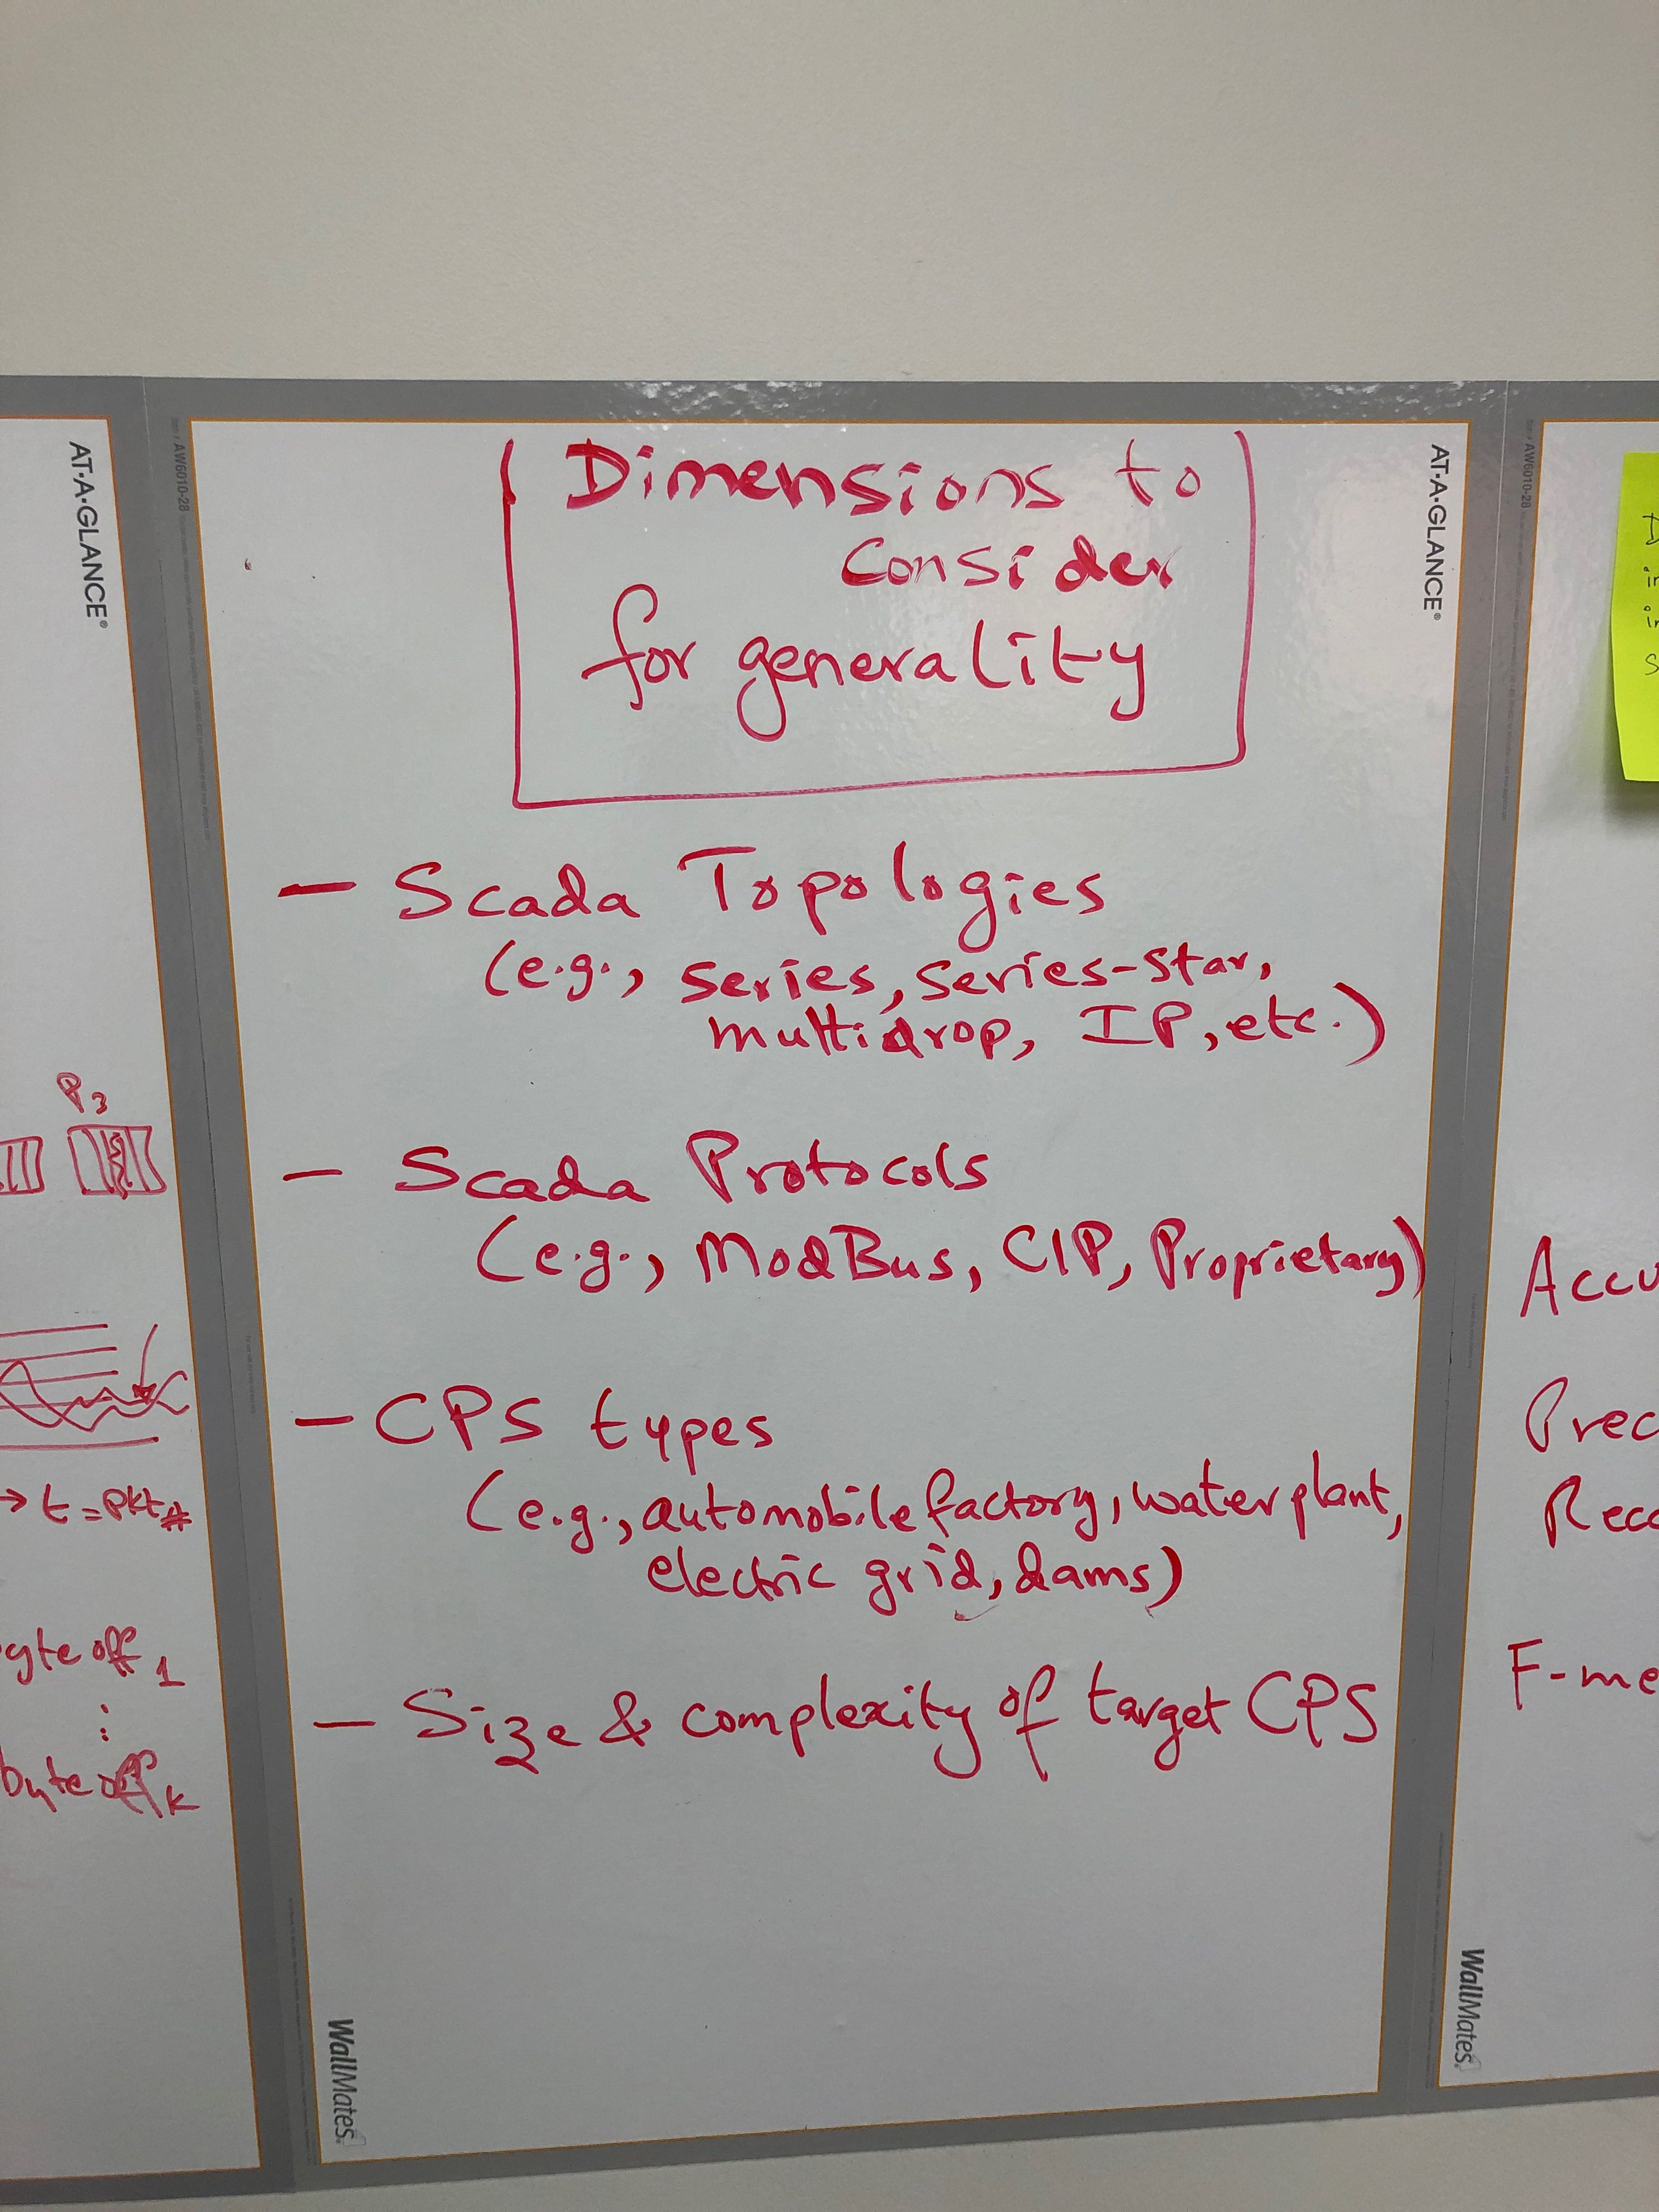 AT-A-GLANCE®
P3
→ t = Pkt#
byte off 1
byte off k
AW6010-28
Dimensions to
Consider
for generality
- Scada Topologies
(e.g., series, series-star,
multidrop, IP, etc.)
- Scada Protocols
(e.g., ModBus, CIP, Proprietary)
- CPS types
(e.g., automobile factory, water plant,
electric grid, dams)
- Size & complexity of target CPS
AT-A-GLANCE®
WallMates
AW6010-28
Accu
Prec
Reca
F-me
WallMates